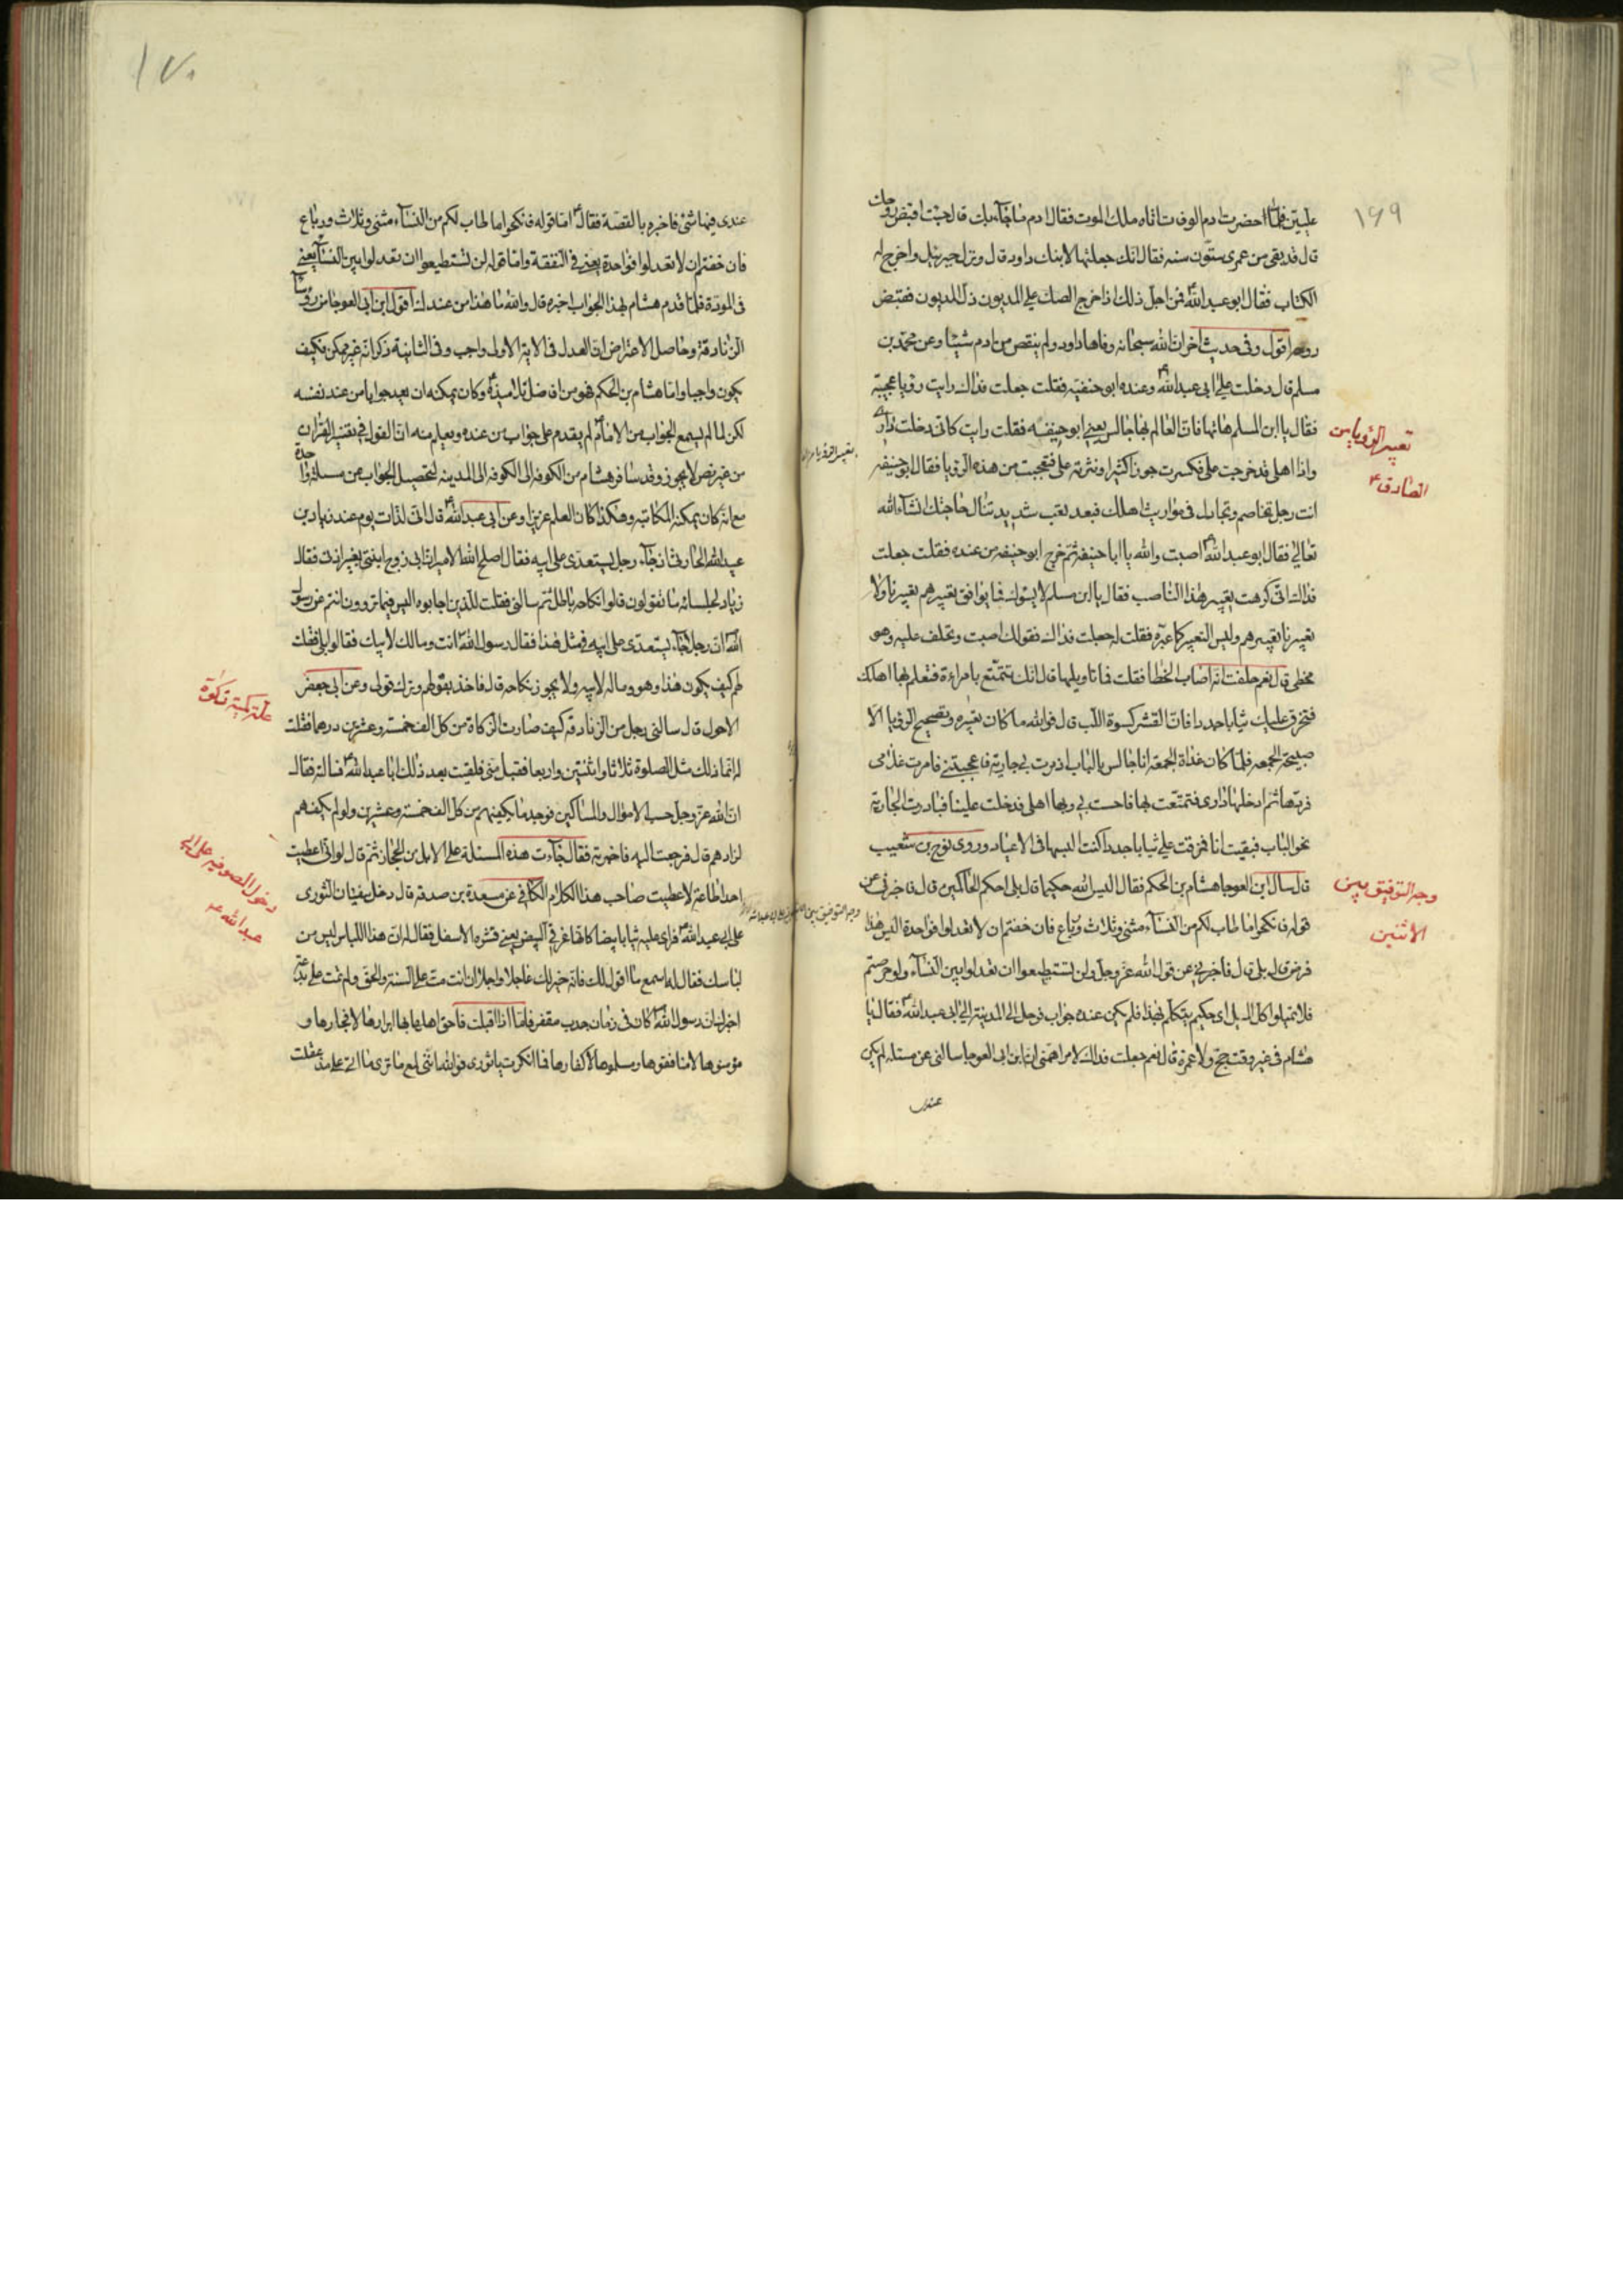 ١٦٩
عليين فلما احضرت ادم الوفات اتاه ملك الموت فقال ادم ما جآء بك قال جئت اقبض روحك
قال قد بقى من عمرى ستون سنه فقال انك جعلتها لابنك داود قال ونزل جبرئيل واخرج له
الكتاب فقال ابو عبد الله فمن اجل ذلك اذا خرج الصك على المديون ذل المديون فقبض
روحه اقول وفى حديث اخر ان الله سبحانه وفاها داود ولم ينقص من ادم شيئا وعن محمد بن
مسلم قال دخلت على ابى عبد الله ع وعنده ابو حنيفه فقلت جعلت فداك رايت رؤيا عجيبة
فقال يا ابن المسلم هاتها فان العالم بها جالس يعنى ابو حنيفه فقلت رايت كانى دخلت دارى
واذا اهلى قد خرجت على فكسرت جوزا كثيرا ونثرته على فتعجبت من هذه الرؤيا فقال ابو حنيفه
انت رجل تخاصم وتجادل فى مواريث اهلك فبعد تعب شديد تنال حاجتك انشآء الله
تعالى فقال ابو عبد الله ع اصبت والله يا ابا حنيفه ثم خرج ابو حنيفه من عنده فقلت جعلت
فداك انى كرهت تعبير هذا الناصب فقال يا ابن مسلم لا يسؤك فما يوافق تعبيرهم تعبيرنا ولا
تعبيرنا تعبيرهم وليس التعبير كما عبره فقلت له جعلت فداك فقولك اصبت وتحلف عليه وهو
مخطى قال نعم حلفت انه اصاب الخطا فقلت فما تاويلها قال انك تتمتع بامراءة فتعلم بها اهلك
فتخرق عليك ثيابا جددا فان القشر كسوة اللب قال فوالله ما كان تعبيره وتصحيح الرؤيا الا
صبيحة الجمعه فلما كان غداة الجمعة انا جالس بالباب اذ مرت بى جارية فاعجبتنى فامرت غلامى
فردها ثم ادخلها دارى فتمتعت بها فاحست بى وبها اهلى فدخلت علينا فبادرت الجارية
نحو الباب فبقيت انا فمزقت على ثيابا جددا كنت البسها فى الاعياد وروى نوح بن شعيب
قال سال ابن العوجا هشام بن الحكم فقال اليس الله حكيما قال بلى احكم الحاكمين قال فاخبرنى عن
قوله فانكحوا ما طاب لكم من النسآء مثنى وثلاث ورباع فان خفتم ان لا تعدلوا فواحدة اليس هذا
فرض قال بلى قال فاخبرنى عن قول الله عز وجل ولن تستطيعوا ان تعدلوا بين النسآء ولو حرصتم
فلا تميلوا كل الميل اى حكيم يتكلم بهذا فلم يكن عنده جواب فرحل الى المدينة الى ابى عبد الله ع فقال يا
هشام فى غير وقت حج ولا عمرة قال نعم جعلت فداك لامر اهمنى ان ابن ابى العوجا سالنى عن مسئله لم يكن
عندى
تعبير الرؤيا من
الصادق ع
وجه التوفيق بين
الاثنين
١٧٠
عندى فيها شئ فاخبره بالقصة فقال ع اما قوله فانكحوا ما طاب لكم من النسآء مثنى وثلاث ورباع
فان خفتم ان لا تعدلوا فواحدة يعنى فى النفقة واما قوله لن تستطيعوا ان تعدلوا بين النسآء يعنى
فى المودة فلما قدم هشام بهذا الجواب اخبره قال والله ما هذا من عندك اقول ابن ابى العوجا من رؤسآ
الزنادقة وحاصل الاعتراض ان العدل فى الاية الاولى واجب وفى الثانية ذكر انه غير ممكن فكيف
يكون واجبا واما هشام بن الحكم فهو من افاضل تلاميذه وكان يمكنه ان يعيد جوابا من عند نفسه
لكن لما لم يسمع الجواب من الامام لم يقدم على جواب من عنده ويعلم منه ان القول فى تفسير القران
من غير نص لا يجوز وقد سافر هشام من الكوفه الى المدينه لتحصيل الجواب عن مسئلة واحدة
مع انه كان يمكنه المكاتبه وهكذا كان العلم عزيزا وعن ابى عبد الله ع قال انى لذات يوم عند زياد بن
عبيد الله الحارثى اذ جآء رجل يستعدى على ابيه فقال اصلح الله الامير ان ابى زوج ابنتى بغير اذنى فقال
زياد لجلسائه ما تقولون قالوا نكاحه باطل ثم سالنى فقلت للذين اجابوه اليس فيما تروون انتم عن رسول
الله ان رجلا جآء يستعدى على ابيه فى مثل هذا فقال رسول الله انت ومالك لابيك فقالوا بلى فقلت
لهم كيف يكون هذا وهو وماله لابيه ولا يجوز نكاحه قال فاخذ بقولهم وترك قولى وعن ابى جعفر
الاحول قال سالنى رجل من الزنادقة كيف صارت الزكاة من كل الف خمسة وعشرين درهما فقلت
له انما ذلك مثل الصلوة ثلاثا واثنتين واربعا فقبل منى فلقيت بعد ذلك ابا عبد الله ع فسالته فقال
ان الله عز وجل حسب الاموال والمساكين فوجد ما يكفيهم من كل الف خمسة وعشرين ولو لم يكفهم
لزادهم قال فرجعت اليه فاخبرته فقال جآءت هذه المسئلة على الابل من الحجاز ثم قال لو انى اعطيت
احدا طاعة لاعطيت صاحب هذا الكلام الكافى عن مسعدة بن صدقة قال دخل سفيان الثورى
على ابى عبد الله فراى عليه ثيابا بيضا كانها غرقئ البيض يعنى قشره الاسفل فقال له ان هذا اللباس ليس من
لباسك فقال له اسمع ما اقول لك فانه خير لك عاجلا واجلا ان انت مت على السنة والحق ولم تمت على بدعة
اخبرك ان رسول الله كان فى زمان جدب مقفر فاما اذا اقبلت فاحق اهلها بها ابرارها لا فجارها و
مؤمنوها لا منافقوها ومسلموها لا كفارها فما انكرت يا ثورى فوالله اننى لمع ما ترى ما اتى على مذ عقلت
علة كمية زكوة
دخول الصوفيه على ابى
عبد الله ع